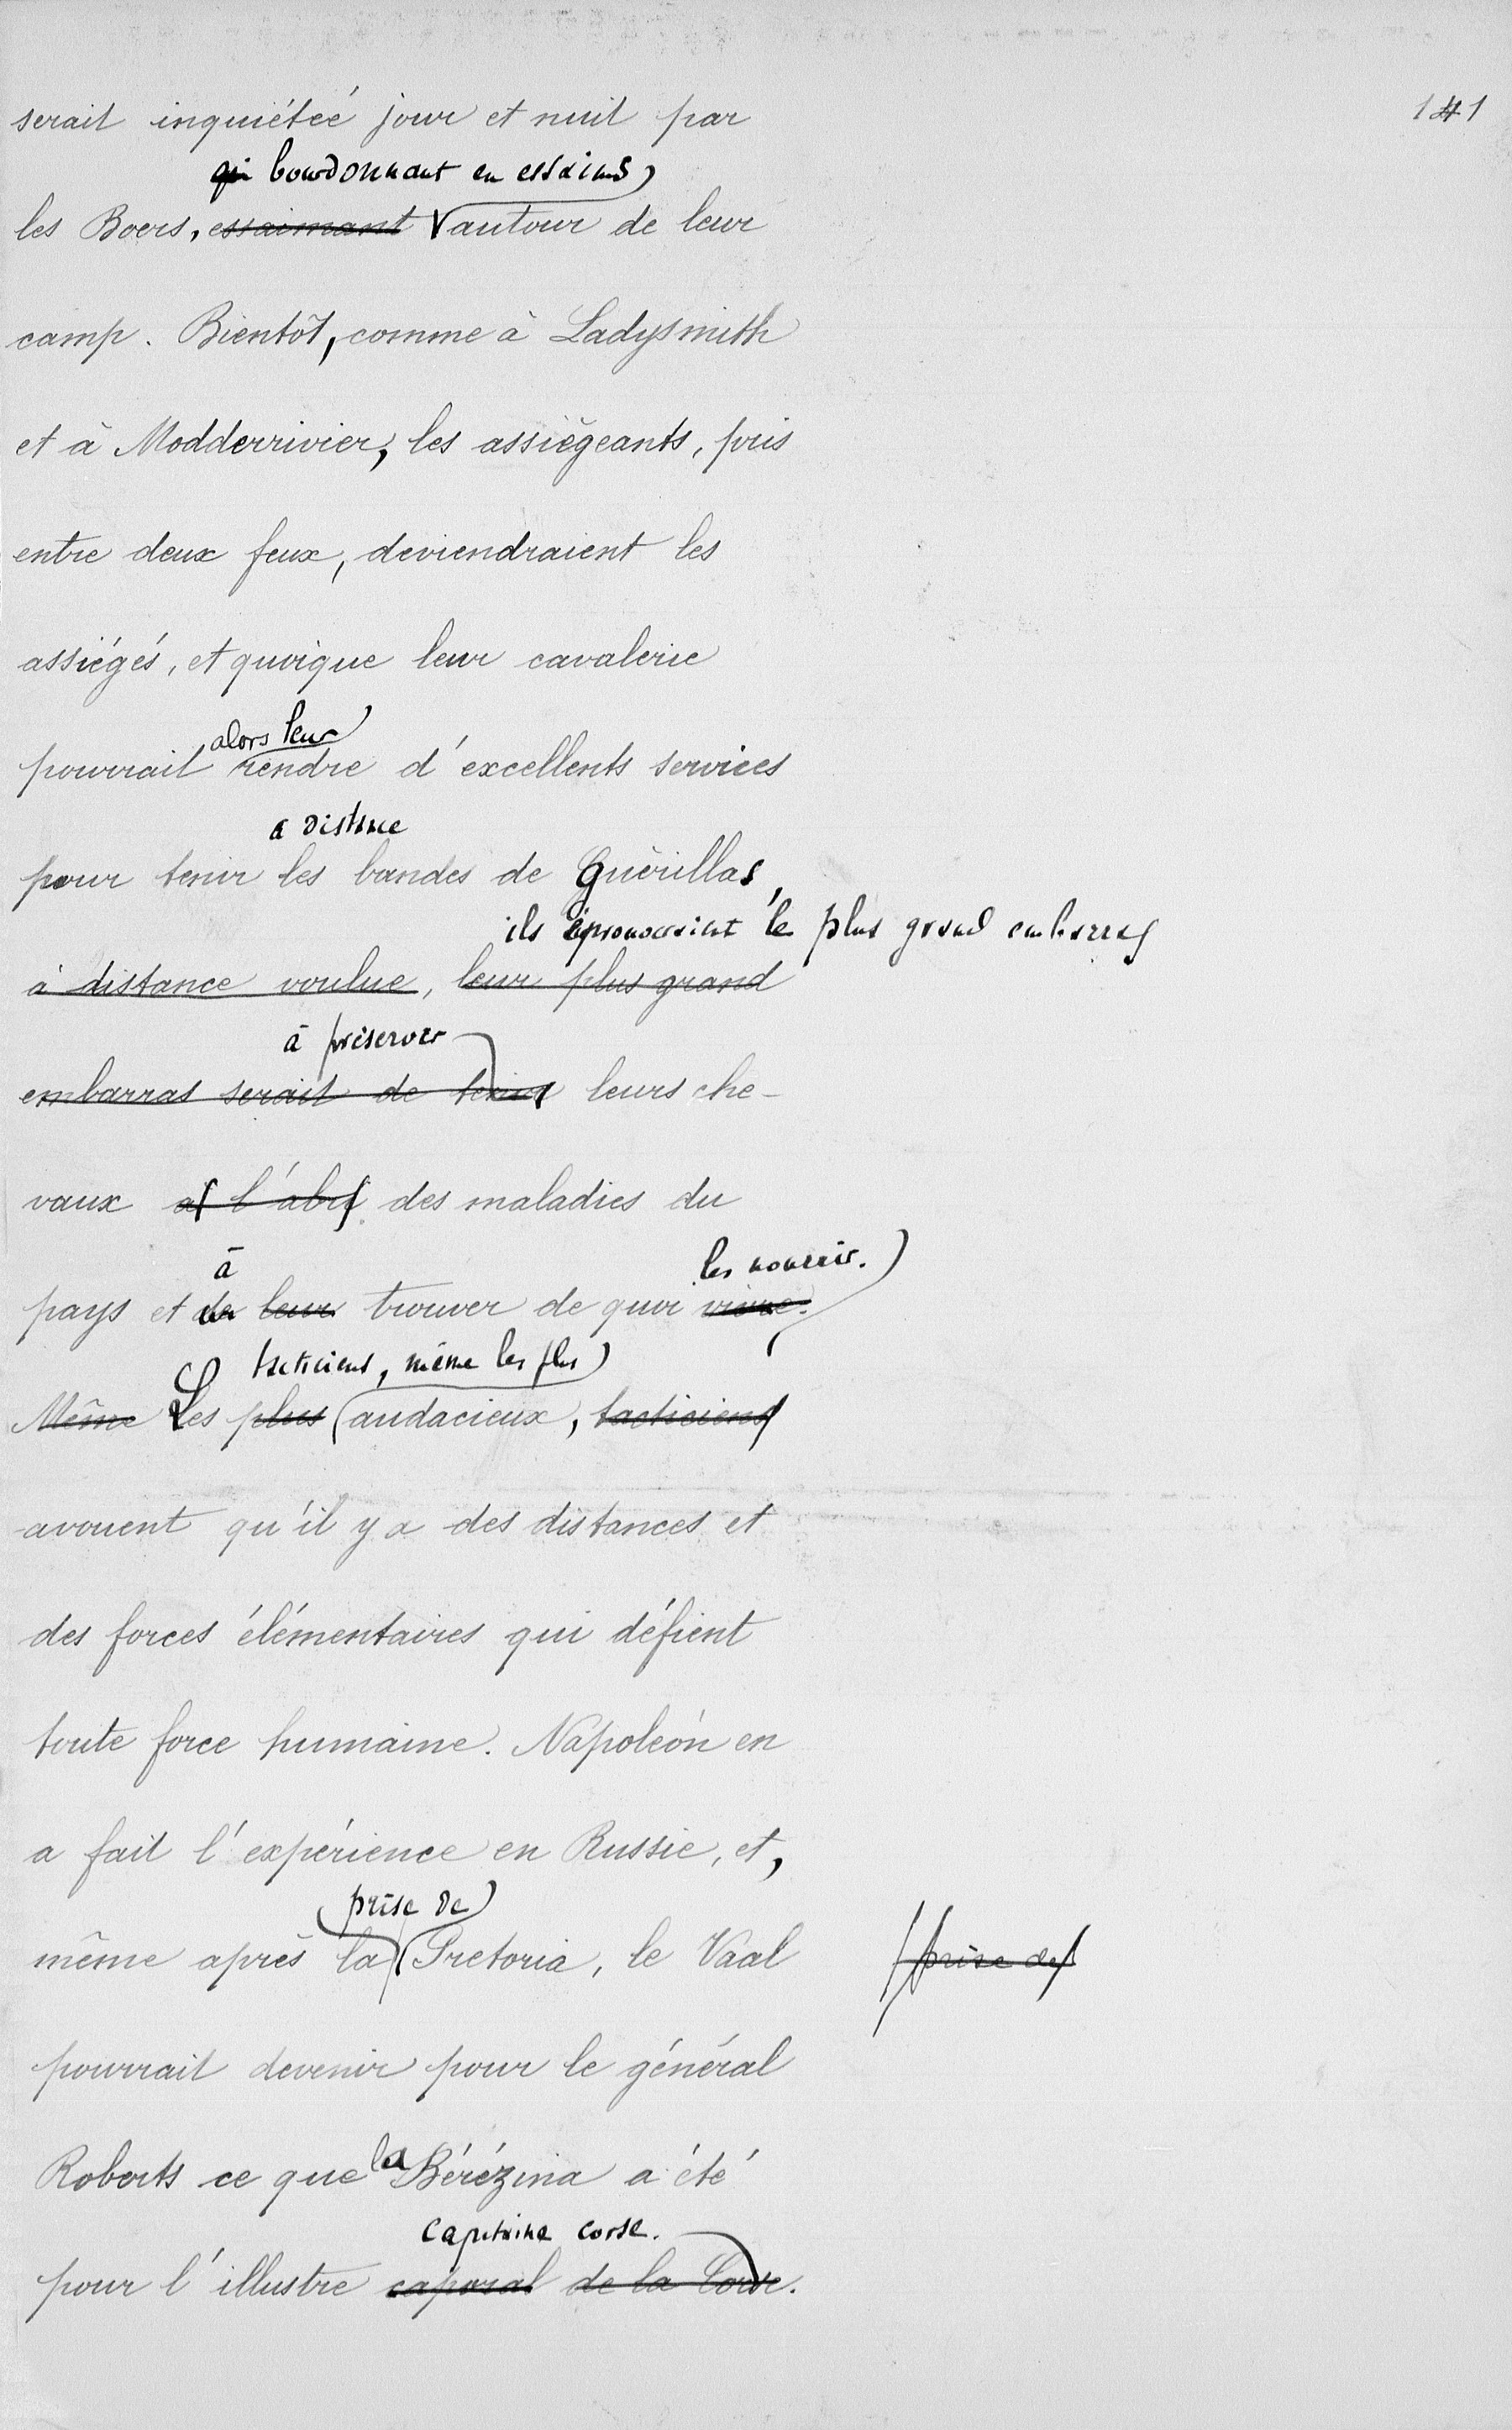 141
serait inquiétée jour et nuit par
qui bourdonnant en essaims
les Boers, essaimant autour de leur
camp. Bientôt, comme à Ladysmith
et à Modderrivier, les assiégeants, pris
entre deux feux, deviendraient les
assiégés, et quoique leur cavalerie
alors leur
pourrait rendre d'excellents services
a distance
pour tenir les bandes de Guérillas,
ils éprouveraient le plus grand embarras
à distance voulue, leur plus grand
à préserver
embarras serait de tenir leurs che-
vaux à l'abri des maladies du
à les nourrir.
pays et de leur trouver de quoi vivre.
tacticiens, même les plus
Même Les plus audacieux, tacticiens
avouent qu'il y a des distances et
des forces élémentaires qui défient
toute force humaine. Napoléon en
a fait l'expérience en Russie, et,
prise de
même après la Pretoria, le Vaal prise de
pourrait devenir pour le général
Roberts ce que la Bérézina a été
capitaine corse.
pour l'illustre caporal de la Corse.